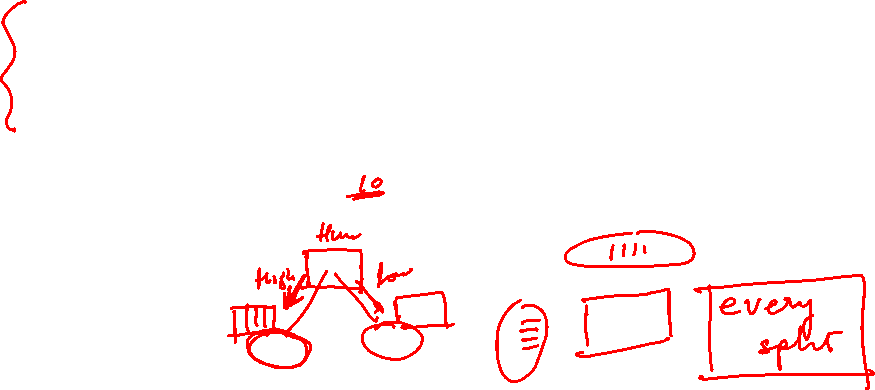 10
Hum
High
Low
every
split